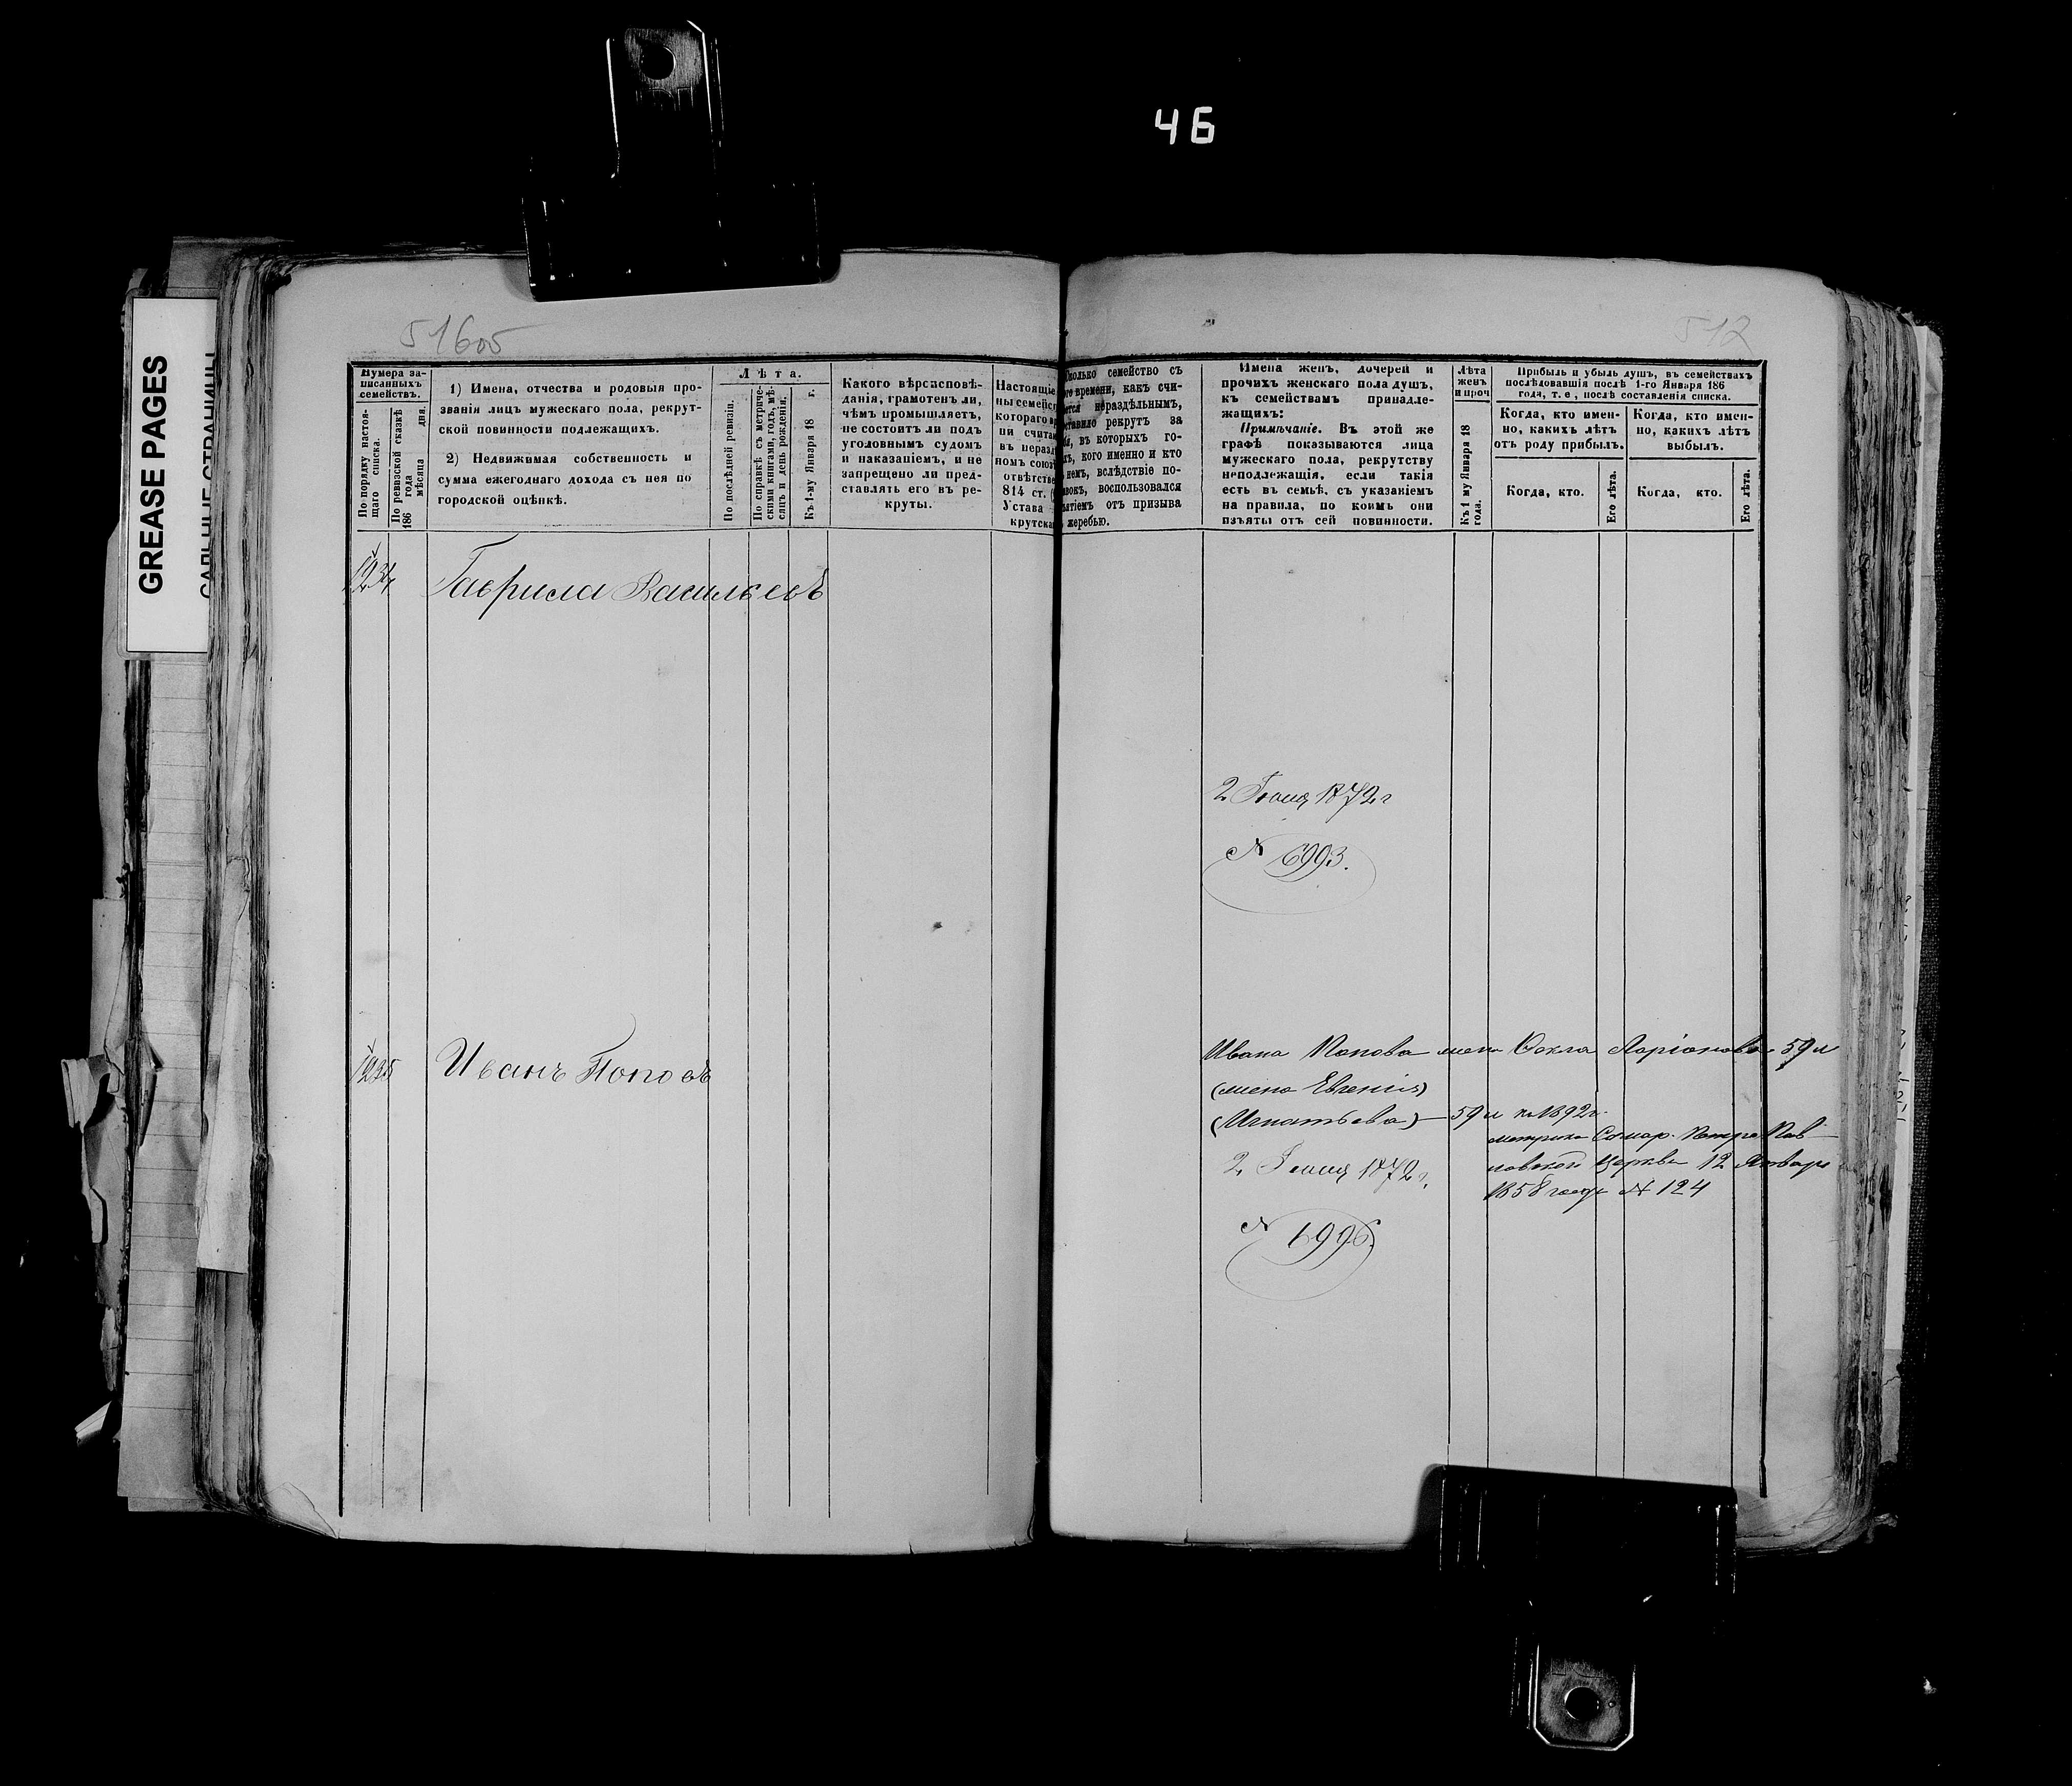 46
GREASE PAGES
САЛЬНЫЕ СТРАНИЦЫ
512
Нумера за-
писанныхъ
семействъ.
По порядку настоя-
щаго списка.
По ревизской сказкѣ
186 года
мѣсяца дня.
1) Имена, отчества и родовыя про-
званія лицъ мужескаго пола, рекрут-
ской повинности подлежащихъ.
2) Недвижимая собственность и
сумма ежегоднаго дохода съ нея по
городской оцѣнкѣ.
Лѣта.
По послѣдней ревизіи.
По справкѣ съ метриче-
скими книгами, годъ, мѣ-
сяцъ и день рожденія.
Къ 1-му Января 18 г.
Какого вѣроисповѣ-
данія, грамотенъ ли,
чѣмъ промышляетъ,
не состоитъ ли подъ
уголовнымъ судомъ
и наказаніемъ, и не
запрещено ли пред-
ставлять его въ ре-
круты.
Настоящіе
ны семейс
котораго в
ни считае
въ неразд
номъ союз
отвѣтстве
814 ст. (
Устава
крутска
колько семейство съ
его времени, какъ счи-
ается нераздѣльнымъ,
ставило рекрутъ за
въ которыхъ го-
хъ, кого именно и кто
немъ, вслѣдствіе по-
авокъ, воспользовался
ятіемъ отъ призыва
жеребью.
Имена женъ, дочерей и
прочихъ женскаго пола душъ,
къ семействамъ принадле-
жащихъ:
Примѣчаніе. Въ этой же
графѣ показываются лица
мужескаго пола, рекрутству
неподлежащія, если такія
есть въ семьѣ, съ указаніемъ
на правила, по коимъ они
изъяты отъ сей повинности.
Лѣта
женъ
и проч
Къ 1 му Января 18
года.
Прибыль и убыль душъ, въ семействахъ
послѣдовавшія послѣ 1-го Января 186
года, т. е., послѣ составленія списка.
Когда, кто имен-
но, какихъ лѣтъ
отъ роду прибылъ.
Когда, кто имен-
но, какихъ лѣтъ
выбылъ.
Когда, кто.
Его лѣта.
Когда, кто.
Его лѣта.
1234 Гаврила Васильевъ
2 Іюня 1872 г
№ 6993.
1235 Иванъ Поповъ
Ивана Попова жена Фекла Ларіонова 59 л
(жена Евгенія)
(Игнатьева) — 59 л на 1892 г.
метрика Самар. Петро Пав-
ловской Церкви 12 Января
1858 года № 124
2 Іюня 1872 г.
№ 6996.